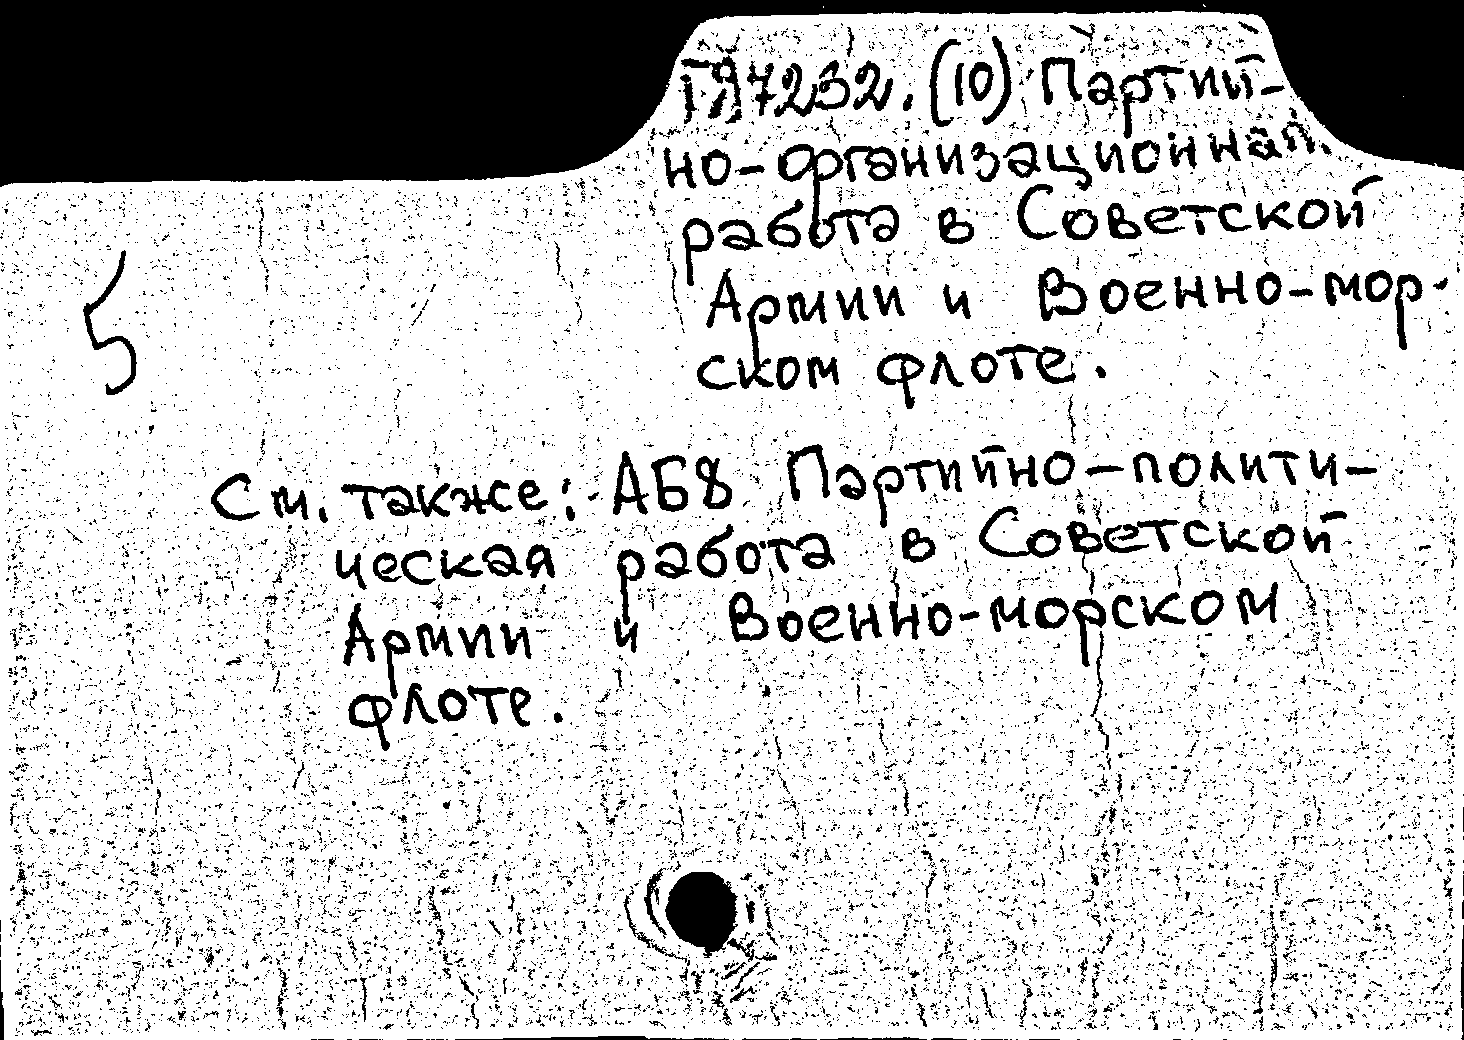 ГЯ7232.(10) Партий-
но-организационная
работа в Советской
Армии и Военно-мор-
ском флоте.
5
См. также: АБ8 Партийно-полити-
ческая работа в Советской
Армии и Военно-морском
флоте.